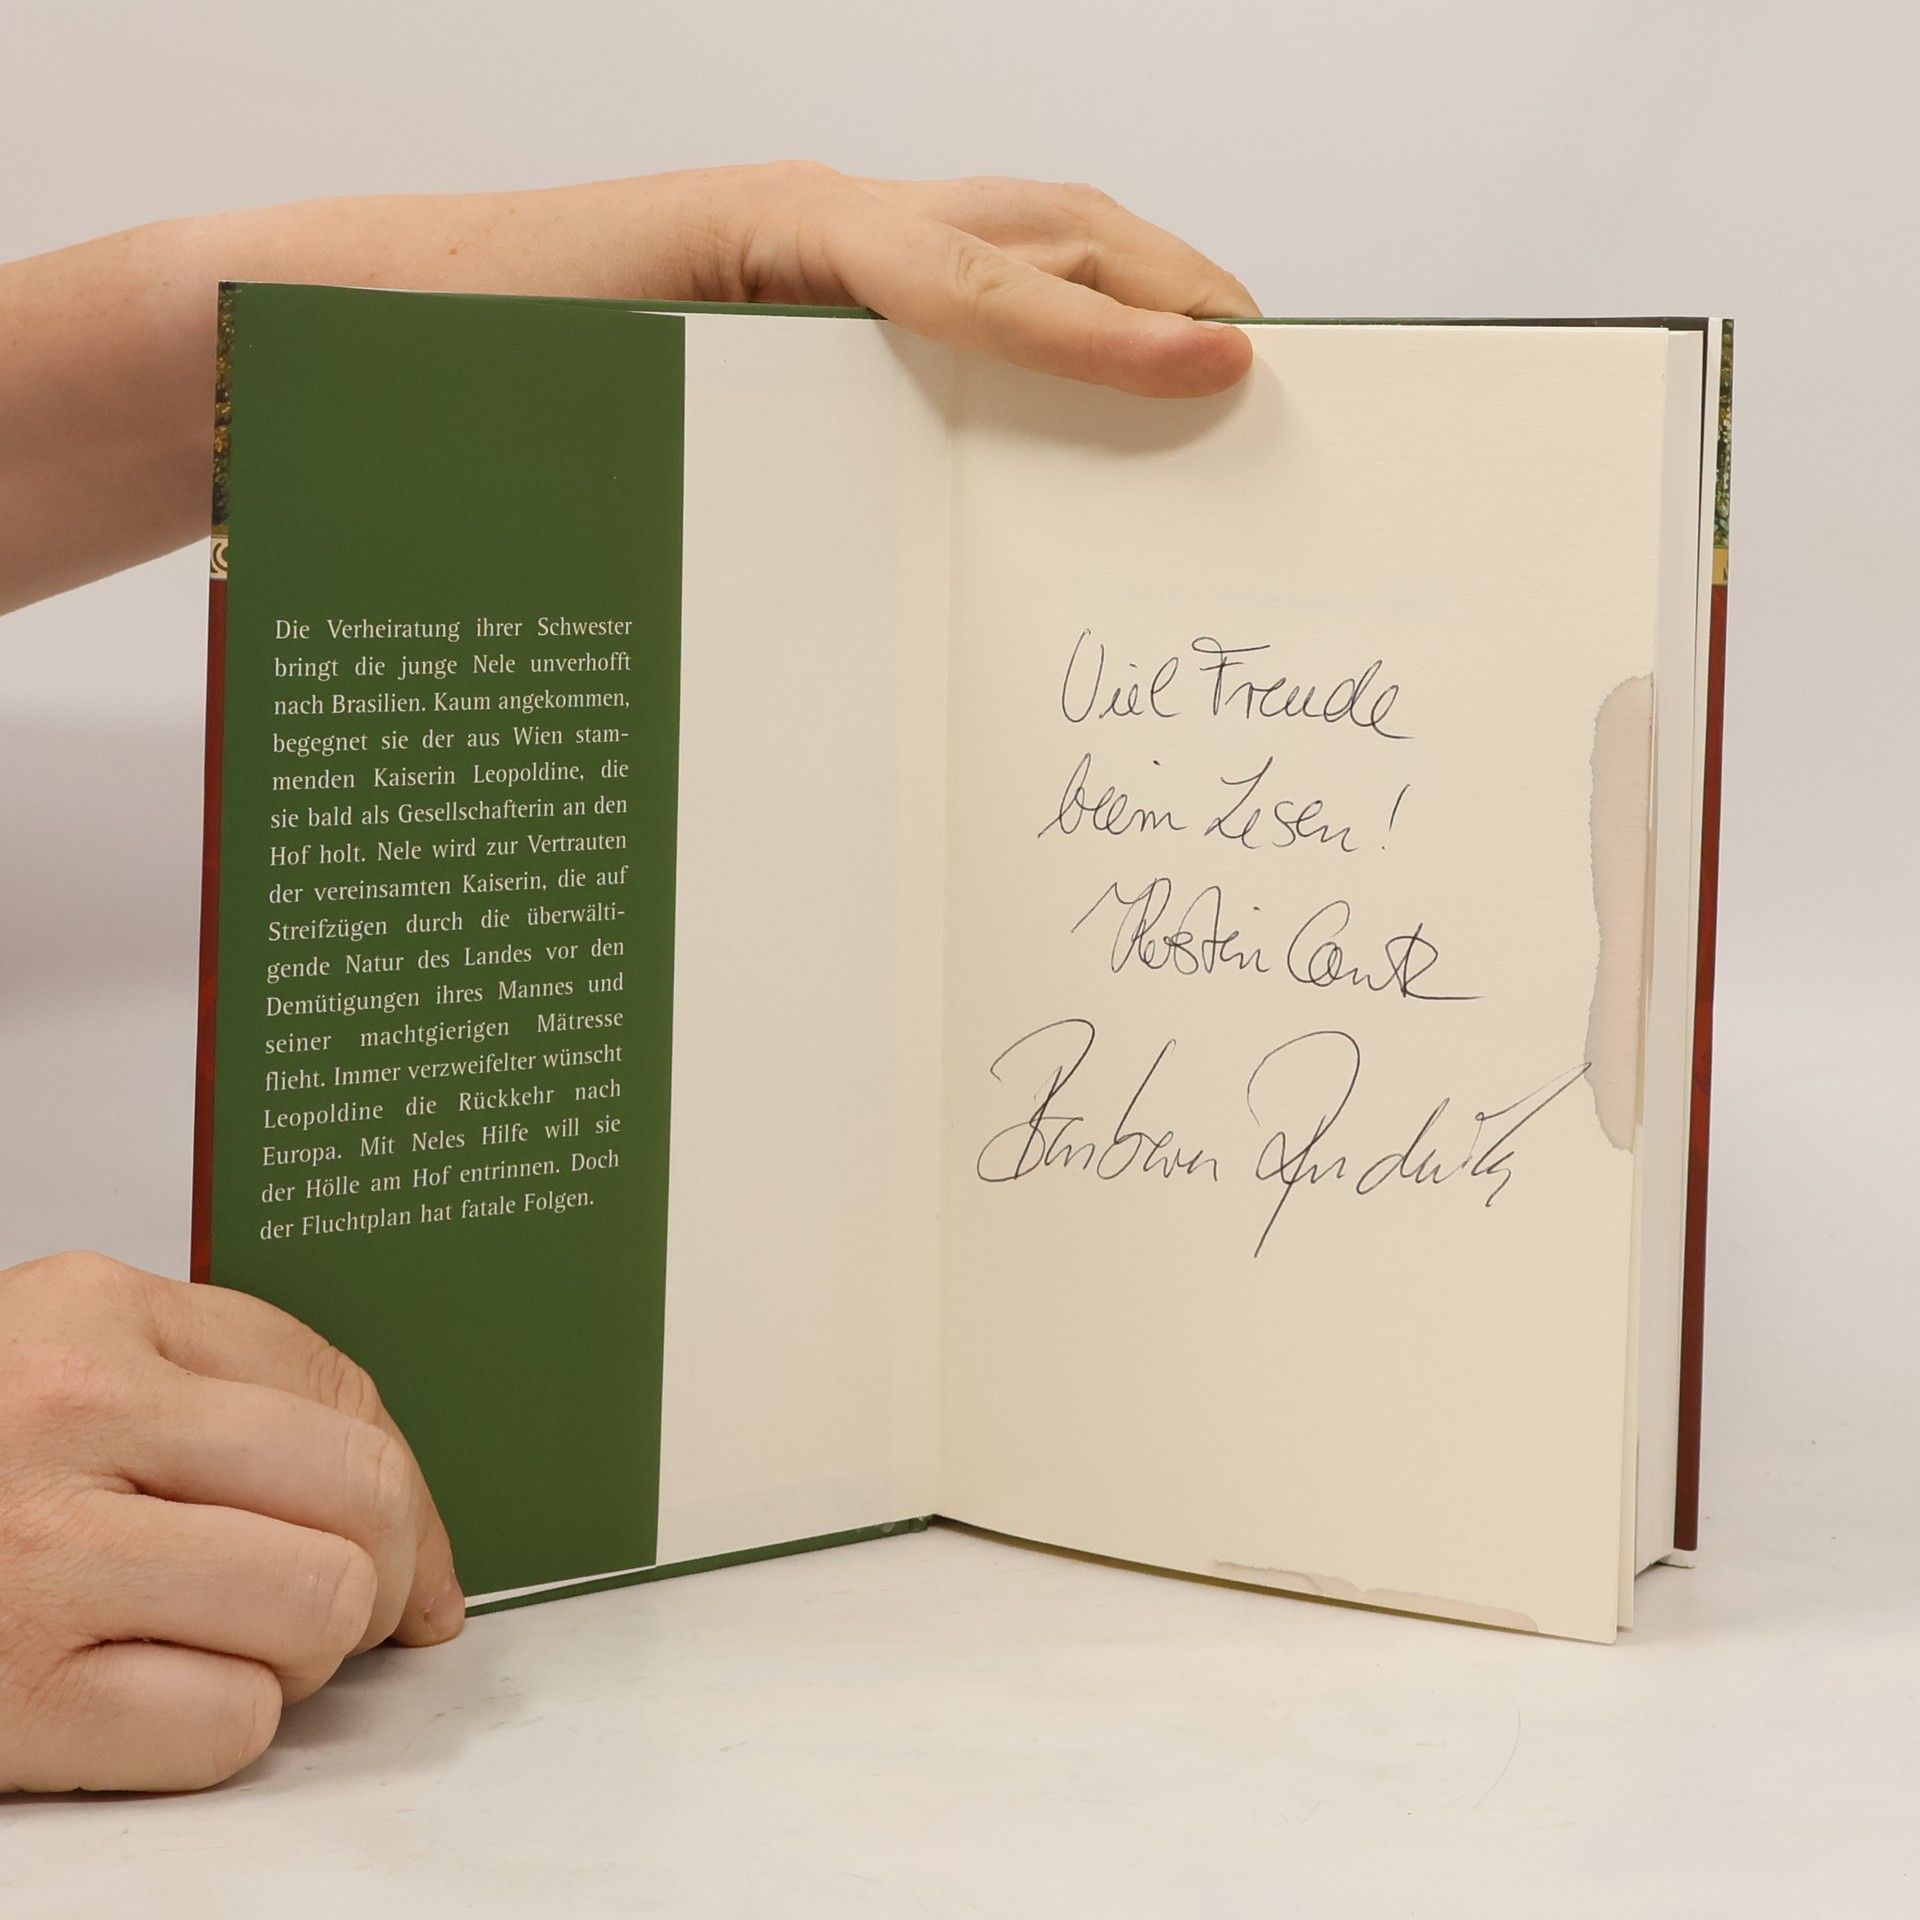 Die Verheiratung ihrer Schwester
bringt die junge Nele unverhofft
nach Brasilien. Kaum angekommen,
begegnet sie der aus Wien stam-
menden Kaiserin Leopoldine, die
sie bald als Gesellschafterin an den
Hof holt. Nele wird zur Vertrauten
der vereinsamten Kaiserin, die auf
Streifzügen durch die überwälti-
gende Natur des Landes vor den
Demütigungen ihres Mannes und
seiner machtgierigen Mätresse
flieht. Immer verzweifelter wünscht
Leopoldine die Rückkehr nach
Europa. Mit Neles Hilfe will sie
der Hölle am Hof entrinnen. Doch
der Fluchtplan hat fatale Folgen.
Viel Freude
beim Lesen!
Kerstin
Barbara